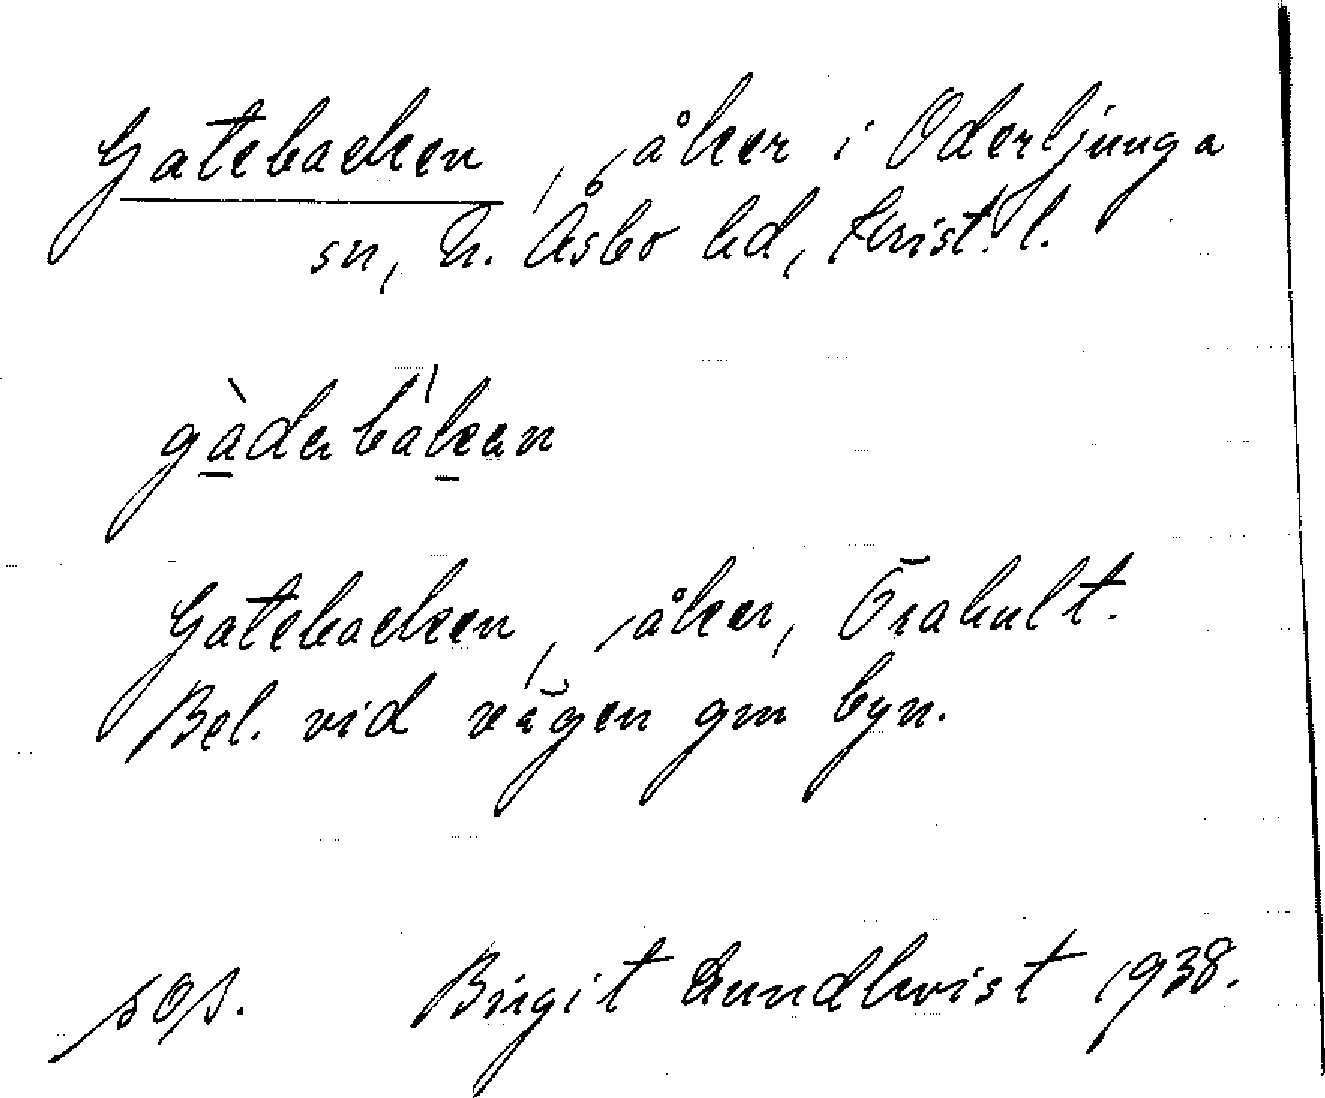 Gatebacken, åker i Oderljunga
sn, N. Åsbo hd, Krist. l.
gàdebàken
Gatebacken, åker, Örahult.
Bel. vid vägen gm byn.
Birgit Lundkvist 1938.